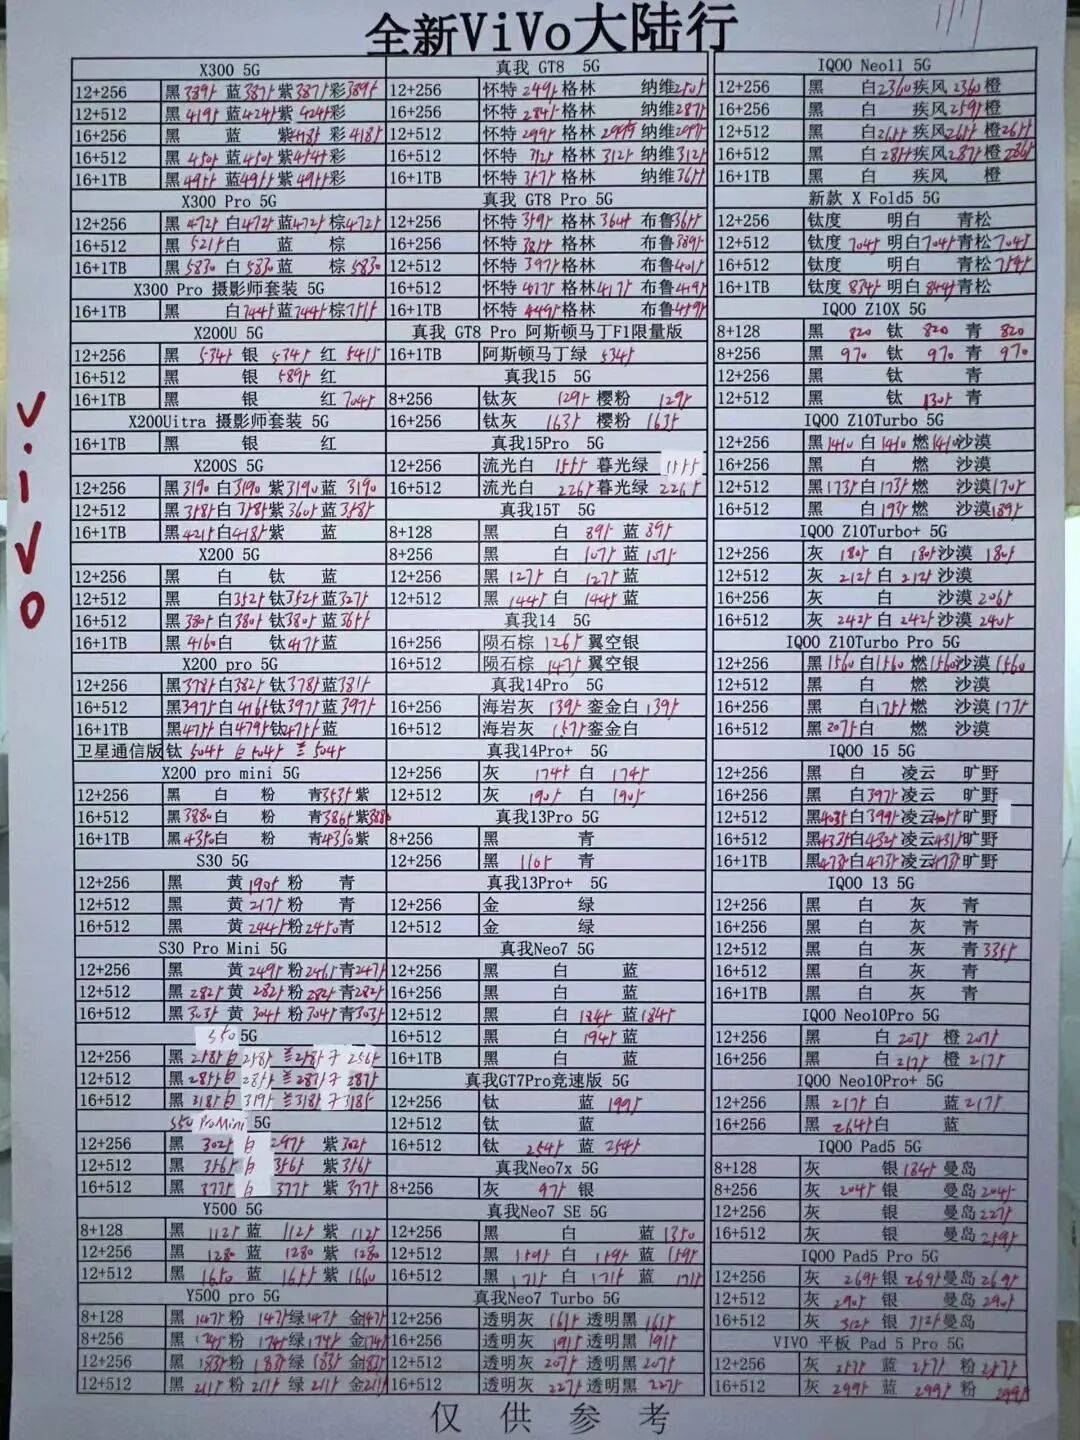 全新ViVo大陆行
ViVo
X300 5G
12+256 黑3895 蓝3875 紫3875 彩3895
12+512 黑4195 蓝4245 紫4245 彩
16+256 黑 蓝 紫4185 彩4185
16+512 黑4505 蓝4505 紫4545 彩
16+1TB 黑4955 蓝4955 紫4955 彩
X300 Pro 5G
12+256 黑4725 白4725 蓝4725 棕4725
16+512 黑5215 白 蓝 棕
16+1TB 黑5830 白5830 蓝 棕5830
X300 Pro 摄影师套装 5G
16+1TB 黑 白7445 蓝7445 棕7515
X200U 5G
12+256 黑5345 银5345 红5415
16+512 黑 银5895 红
16+1TB 黑 银 红7045
X200Uitra 摄影师套装 5G
16+1TB 黑 银 红
X200S 5G
12+256 黑3190 白3190 紫3190 蓝3190
12+512 黑3585 白3585 紫3605 蓝3585
16+1TB 黑4215 白4185 紫 蓝
X200 5G
12+256 黑 白 钛 蓝
12+512 黑 白3525 钛3525 蓝3275
16+512 黑3805 白3805 钛3805 蓝3655
16+1TB 黑4160 白 钛4175 蓝
X200 pro 5G
12+256 黑3785 白3825 钛3785 蓝3815
16+512 黑3975 白4165 钛3975 蓝3975
16+1TB 黑4755 白4795 钛4755 蓝
卫星通信版 钛5045 白5045 兰5045
X200 pro mini 5G
12+256 黑 白 粉 青3535 紫
16+512 黑3880 白 粉 青3865 紫3880
16+1TB 黑4350 白 粉 青4350 紫
S30 5G
12+256 黑 黄1905 粉 青
12+512 黑 黄2175 粉 青
16+512 黑 黄2445 粉2450 青
S30 Pro Mini 5G
12+256 黑 黄2495 粉2465 青2475
12+512 黑2825 黄2825 粉2825 青2825
16+512 黑3035 黄3045 粉3045 青3035
S50 5G
12+256 黑2585 白2585 兰2585 2565
12+512 黑2855 白2855 兰2875 2875
16+512 黑3185 白3195 兰3185 3185
S50 ProMini 5G
12+256 黑3025 白2975 紫3025
12+512 黑3565 白3565 紫3565
16+512 黑3775 白3775 紫3775
Y500 5G
8+128 黑1125 蓝1125 紫1125
12+256 黑1280 蓝1280 紫1280
12+512 黑1650 蓝1655 紫1660
Y500 pro 5G
8+128 黑1475 粉1475 绿1475 金1475
8+256 黑1745 粉1745 绿1745 金1745
12+256 黑1835 粉1835 绿1835 金1835
12+512 黑2115 粉2115 绿2115 金2115
真我 GT8 5G
12+256 怀特2495 格林 纳维2505
16+256 怀特2845 格林 纳维2875
12+512 怀特2995 格林2995 纳维2975
16+512 怀特3125 格林3125 纳维3125
16+1TB 怀特3575 格林 纳维3655
真我 GT8 Pro 5G
12+256 怀特3595 格林3645 布鲁3655
16+256 怀特3855 格林 布鲁3895
12+512 怀特3975 格林 布鲁4015
16+512 怀特4175 格林4175 布鲁4195
16+1TB 怀特4495 格林 布鲁4595
真我 GT8 Pro 阿斯顿马丁F1限量版
16+1TB 阿斯顿马丁绿 5345
真我15 5G
8+256 钛灰 1295 樱粉 1295
12+256 钛灰 1635 樱粉 1635
真我15Pro 5G
12+256 流光白 1555 暮光绿 1555
16+512 流光白 2265 暮光绿 2265
真我15T 5G
8+128 黑 白 895 蓝 895
8+256 黑 白 1075 蓝 1075
12+256 黑 1275 白 1275 蓝
12+512 黑 1445 白 1445 蓝
真我14 5G
16+256 陨石棕 1265 翼空银
16+512 陨石棕 1475 翼空银
真我14Pro 5G
16+256 海岩灰 1395 銮金白 1395
16+512 海岩灰 1575 銮金白
真我14Pro+ 5G
12+256 灰 1745 白 1745
12+512 灰 1905 白 1905
真我13Pro 5G
8+256 黑 青
12+256 黑 1105 青
真我13Pro+ 5G
12+256 金 绿
12+512 金 绿
真我Neo7 5G
12+256 黑 白 蓝
16+256 黑 白 蓝
12+512 黑 白1845 蓝1845
16+512 黑 白1945 蓝
16+1TB 黑 白 蓝
真我GT7Pro竞速版 5G
12+256 钛 蓝 1995
12+512 钛 蓝
16+512 钛 2545 蓝 2545
真我Neo7x 5G
8+256 灰 975 银
真我Neo7 SE 5G
12+256 黑 白 蓝1350
12+512 黑1595 白1595 蓝1595
16+512 黑1715 白1715 蓝1715
真我Neo7 Turbo 5G
12+256 透明灰 1615 透明黑 1615
16+256 透明灰 1915 透明黑 1915
12+512 透明灰 2075 透明黑 2075
16+512 透明灰 2275 透明黑 2275
IQOO Neo11 5G
12+256 黑 白2360 疾风2360 橙
16+256 黑 白 疾风2595 橙
12+512 黑 白2655 疾风2655 橙2655
16+512 黑 白2855 疾风2875 橙2865
16+1TB 黑 白 疾风 橙
新款 X Fold5 5G
12+256 钛度 明白 青松
12+512 钛度7045 明白7045 青松7045
16+512 钛度 明白 青松7545
16+1TB 钛度8345 明白8445 青松
IQOO Z10X 5G
8+128 黑 820 钛 820 青 820
8+256 黑 970 钛 970 青 970
12+256 黑 钛 青
12+512 黑 钛 1305 青
IQOO Z10Turbo 5G
12+256 黑1410 白1410 燃1410 沙漠
16+256 黑 白 燃 沙漠
12+512 黑1735 白1735 燃 沙漠1705
16+512 黑 白1935 燃 沙漠1895
IQOO Z10Turbo+ 5G
12+256 灰 1805 白 1805 沙漠 1805
12+512 灰 2125 白 2125 沙漠
16+256 灰 白 沙漠2065
16+512 灰 2425 白 2425 沙漠2405
IQOO Z10Turbo Pro 5G
12+256 黑1560 白1560 燃1560 沙漠1560
12+512 黑 白 燃 沙漠
16+256 黑 白1755 燃 沙漠1775
16+512 黑2075 白 燃 沙漠
IQOO 15 5G
12+256 黑 白 凌云 旷野
16+256 黑 白3975 凌云 旷野
12+512 黑4035 白3995 凌云4055 旷野
16+512 黑4335 白4325 凌云4315 旷野
16+1TB 黑4735 白4735 凌云4735 旷野
IQOO 13 5G
12+256 黑 白 灰 青
16+256 黑 白 灰 青
12+512 黑 白 灰 青3355
16+512 黑 白 灰 青
16+1TB 黑 白 灰 青
IQOO Neo10Pro 5G
12+256 黑 白 2075 橙 2075
16+256 黑 白 2175 橙 2175
IQOO Neo10Pro+ 5G
12+256 黑 2175 白 蓝 2175
16+256 黑 2645 白 蓝
IQOO Pad5 5G
8+128 灰 银1845 曼岛
8+256 灰 2045 银 曼岛2045
12+256 灰 银 曼岛2275
16+512 灰 银 曼岛2595
IQOO Pad5 Pro 5G
12+256 灰 2695 银 2695 曼岛2695
12+512 灰 2905 银 曼岛2905
16+512 灰 3125 银 3125 曼岛
VIVO 平板 Pad 5 Pro 5G
12+256 灰 2575 蓝 2575 粉2575
16+512 灰 2995 蓝 2995 粉 2995
仅供参考